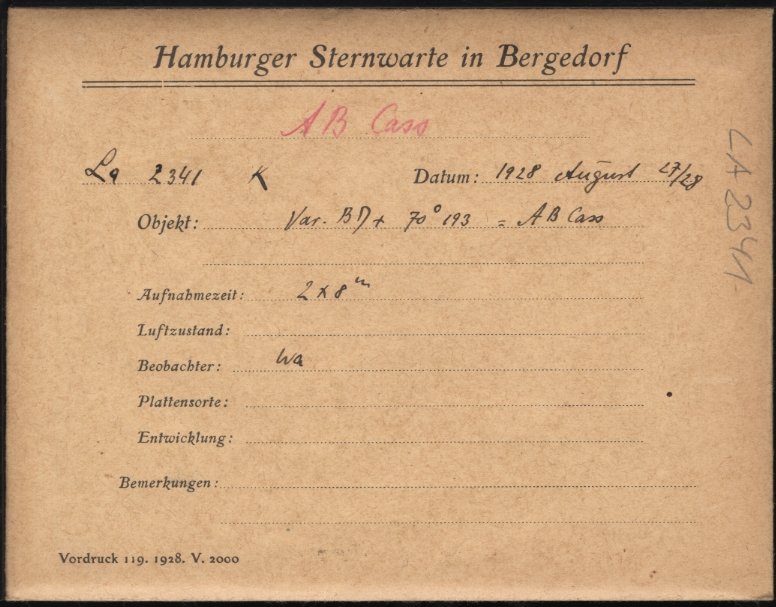 Hamburger Sternwarte in Bergedorf
AB Cass
La 2341 K Datum: 1928 August 27/28
Objekt: Var. BD + 70° 193 = AB Cass
Aufnahmezeit: 2 x 8ᵐ
Luftzustand:
Beobachter: Wa
Plattensorte:
Entwicklung:
Bemerkungen:
Vordruck 119. 1928. V. 2000
LA 2341